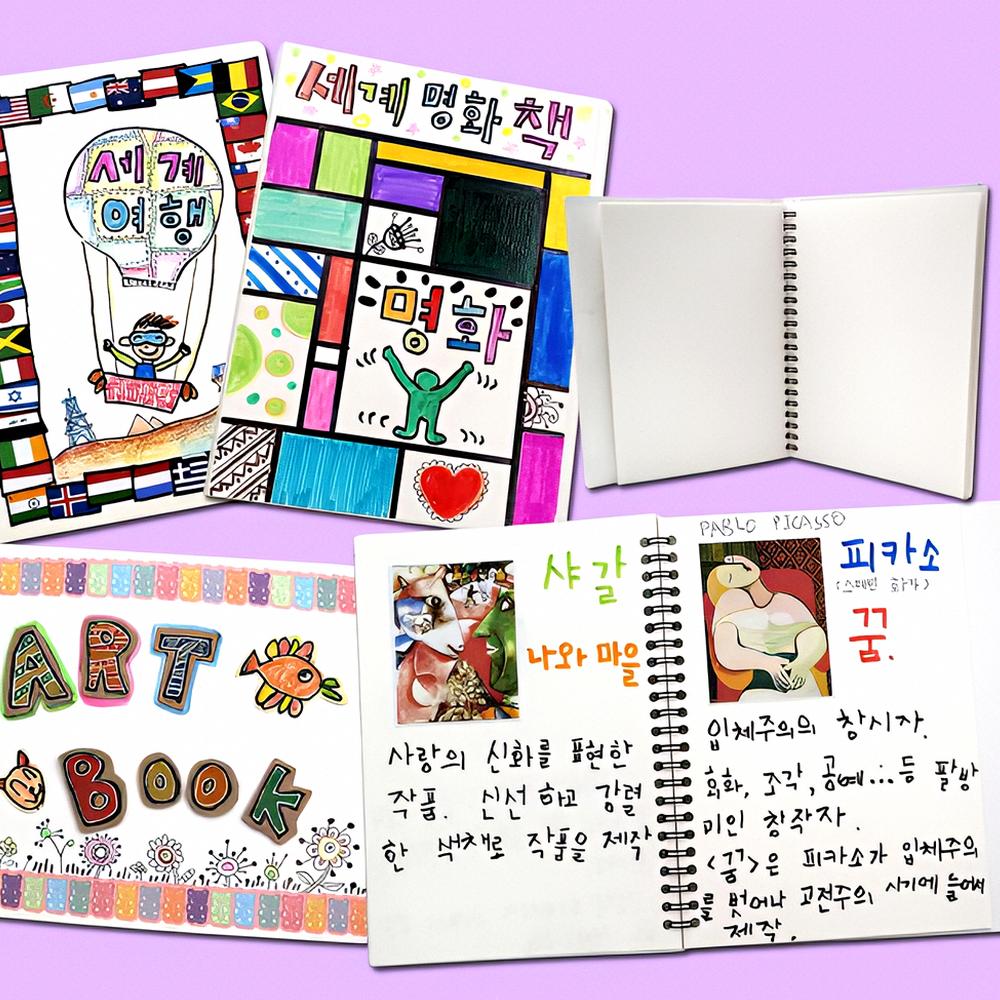 세계
여행
세계 명화 책
명화
ART
BOOK
샤갈
나와 마을
사랑의 신화를 표현한
작품. 신선하고 강렬
한 색채로 작품을 제작
PABLO PICASSO
피카소
(스페인 화가)
꿈.
입체주의의 창시자.
회화, 조각, 공예...등 팔방
미인 창작자.
<꿈>은 피카소가 입체주의
를 벗어나 고전주의 시기에 들어서
제작.